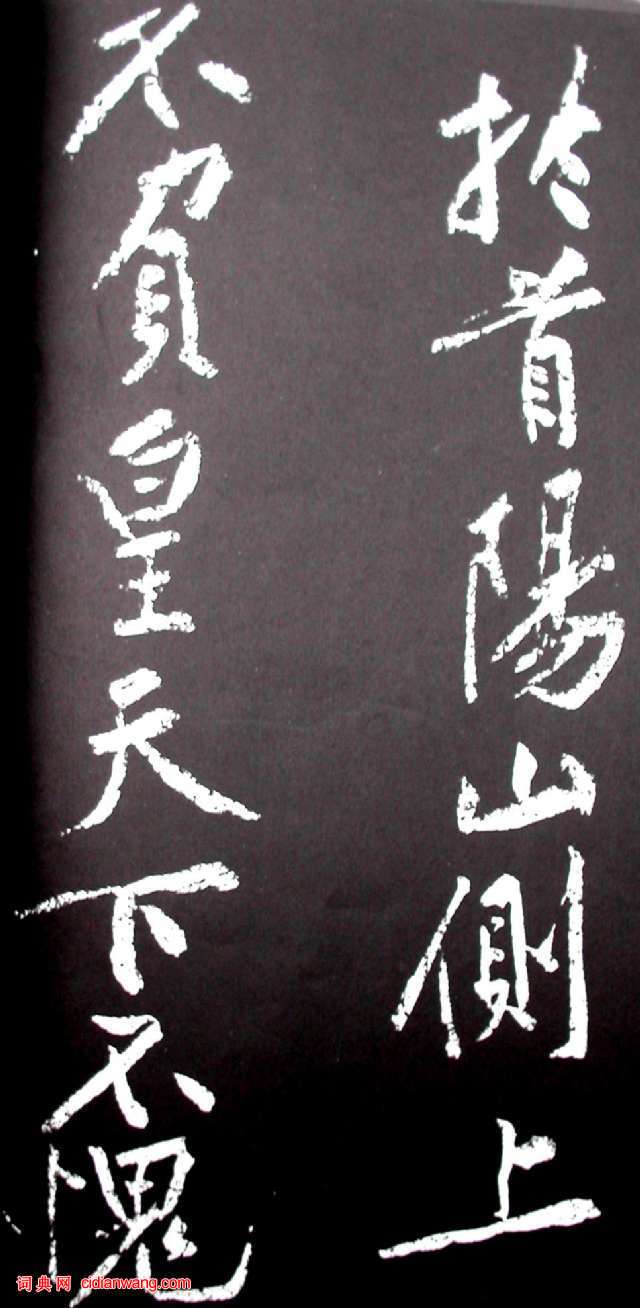 於首陽山側上
不負皇天下不愧
词典网 cidianwang.com